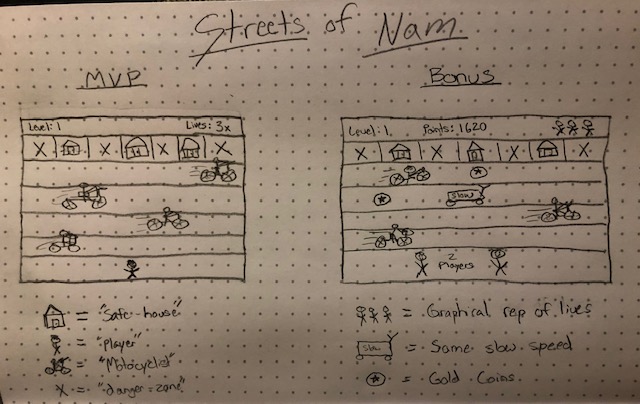 Streets of Nam
MVP
Level: 1 Lives: 3x
X X X X
= "Safe-house"
= "Player"
= "Motocyclist"
X = "danger-zone"
Bonus
Level: 1 Points: 1620
X X X X
Slow
2
Players
= Graphical rep of lives
Slow = Some slow speed
= Gold Coins